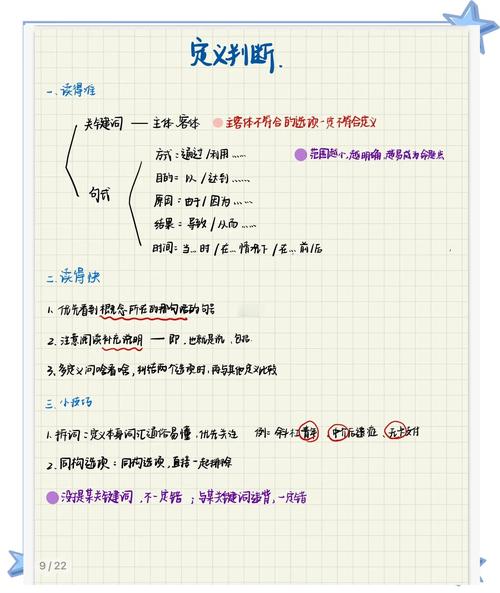 定义判断.
一、读得准
关键词 — 主体.客体 主客体不符合的选项一定不符合定义
方式：通过/利用……
范围越小，越明确，越易成为命题点
目的：以/达到……
句式
原因：由于/因为……
结果：导致/从而……
时间：当…时/在…情况下/在…前/后
二、读得快
1、优先看到概念所在的那句话的句号
2、注意阅读补充说明 — 即，也就是说，包括
3、多定义问啥看啥，纠结两个选项时，再与其他定义比较
三、小技巧
1、拆词：定义本身词汇通俗易懂，优先关注 例： 后遗症、 支付
2、同构选项：同构选项，直接一起排除
没提某关键词，不一定错；与某关键词违背，一定错
9/22